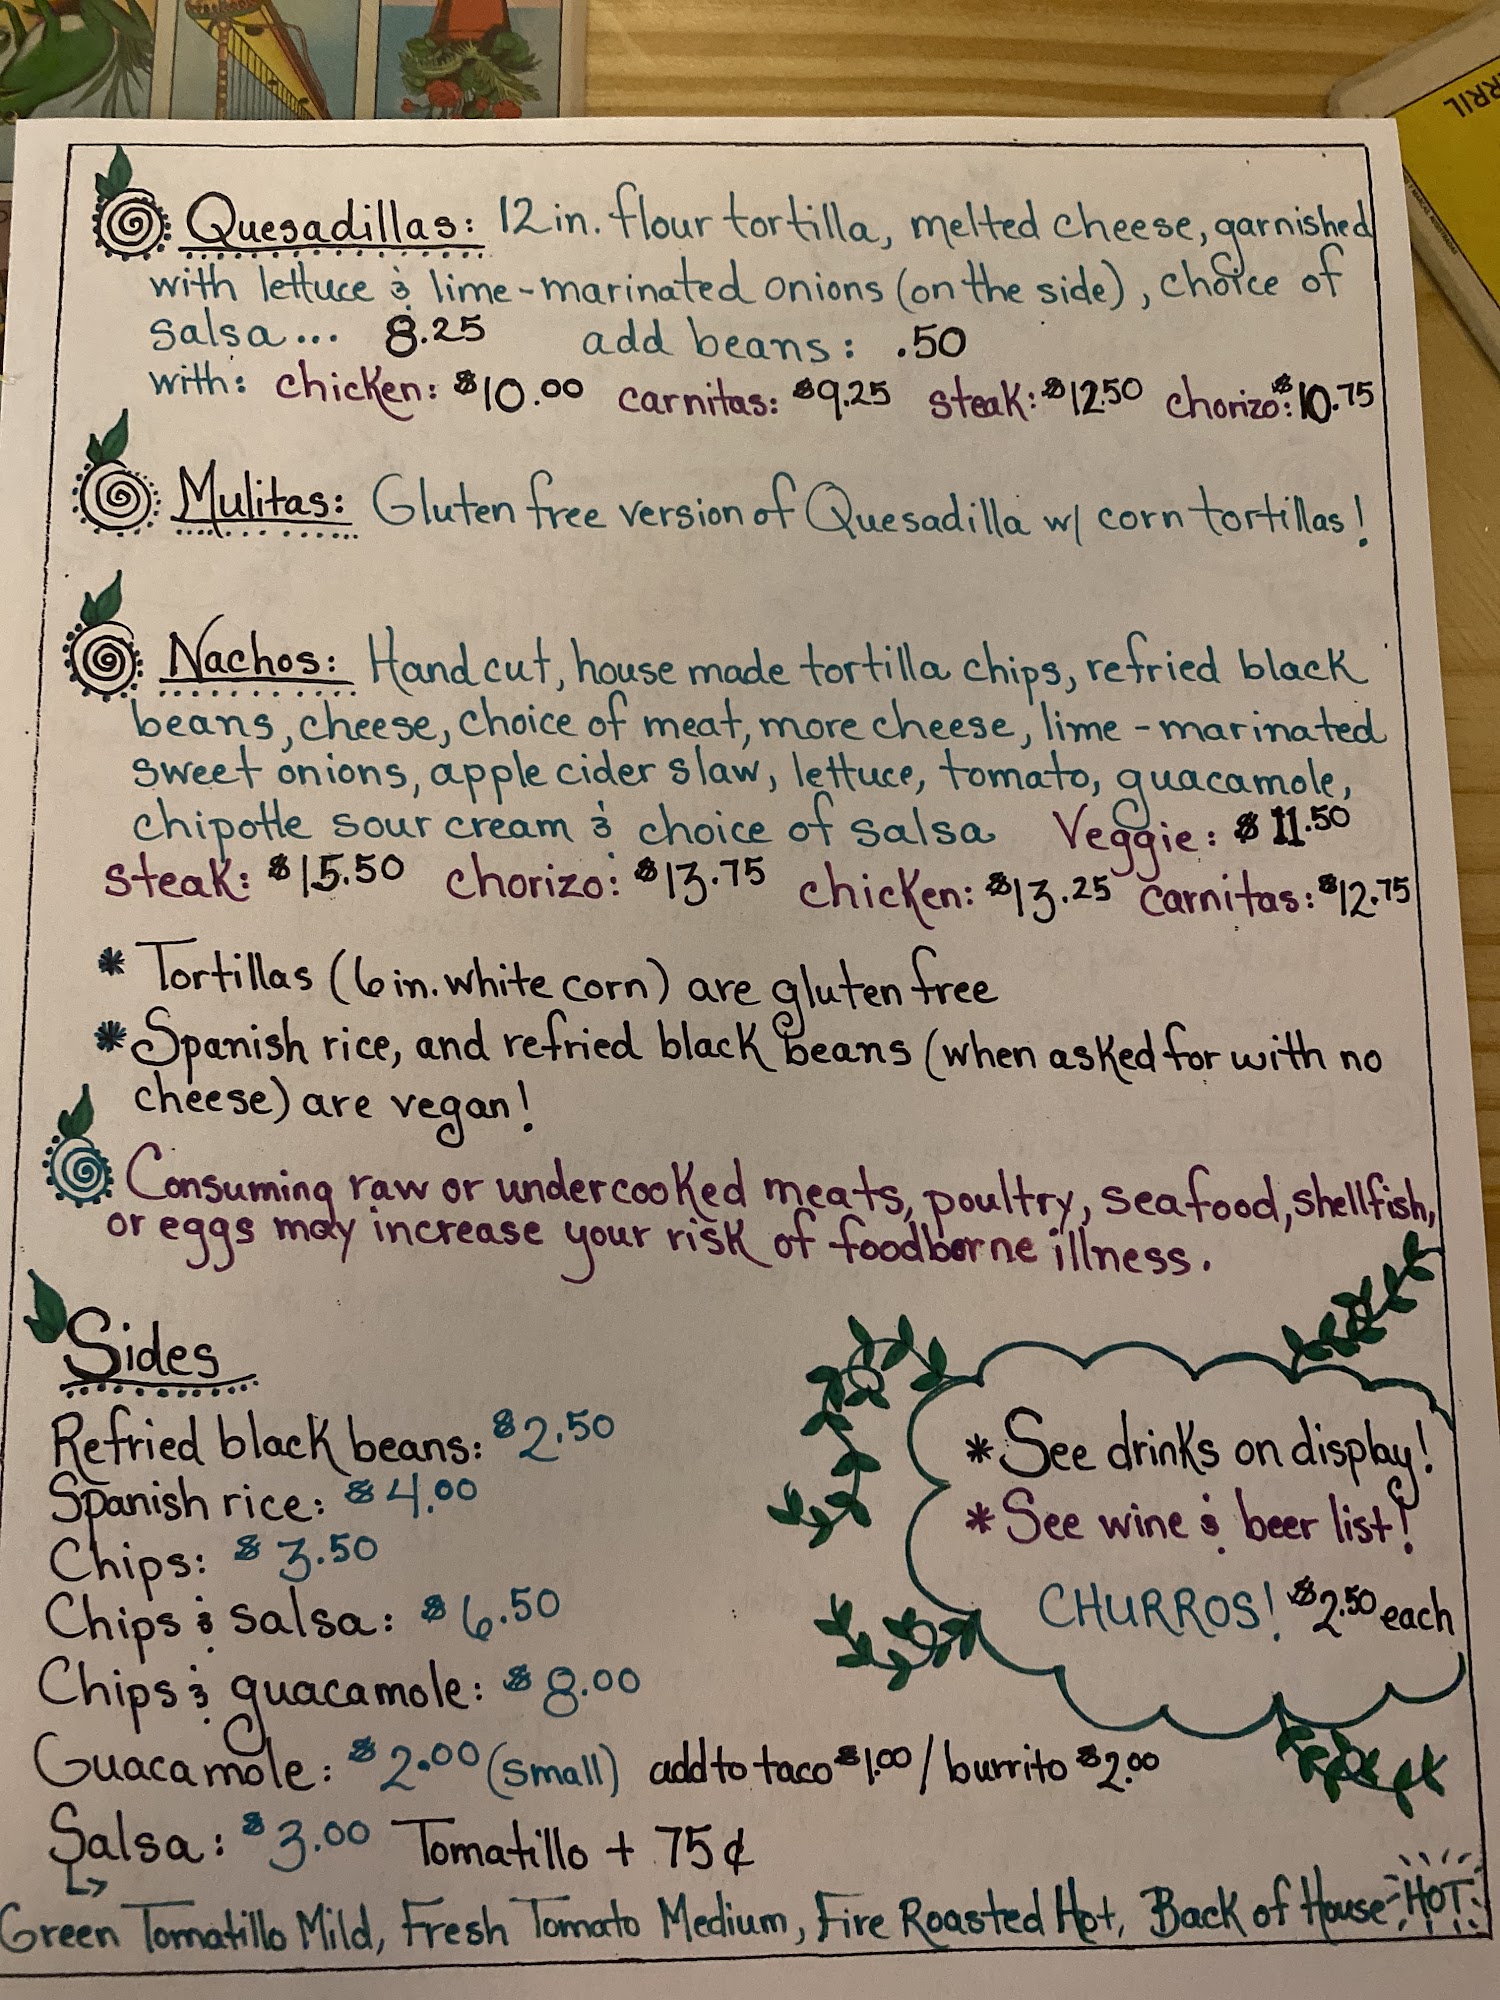 RRIL
Quesadillas: 12in. flour tortilla, melted cheese, garnished
with lettuce & lime-marinated onions (on the side), choice of
salsa... 8.25 add beans: .50
with: chicken: $10.00 carnitas: $9.25 steak: $12.50 chorizo: $10.75
Mulitas: Gluten free version of Quesadilla w/ corn tortillas!
Nachos: Hand cut, house made tortilla chips, refried black
beans, cheese, choice of meat, more cheese, lime-marinated
sweet onions, apple cider slaw, lettuce, tomato, guacamole,
chipotle sour cream & choice of salsa Veggie: $11.50
steak: $15.50 chorizo: $13.75 chicken: $13.25 carnitas: $12.75
* Tortillas (6in. white corn) are gluten free
* Spanish rice, and refried black beans (when asked for with no
cheese) are vegan!
Consuming raw or undercooked meats, poultry, seafood, shellfish,
or eggs may increase your risk of foodborne illness.
Sides
Refried black beans: $2.50
Spanish rice: $4.00
Chips: $3.50
Chips & salsa: $6.50
Chips & guacamole: $8.00
Guacamole: $2.00 (small) add to taco $1.00 / burrito $2.00
Salsa: $3.00 Tomatillo + 75¢
Green Tomatillo Mild, Fresh Tomato Medium, Fire Roasted Hot, Back of House HOT
* See drinks on display!
* See wine & beer list!
CHURROS! $2.50 each